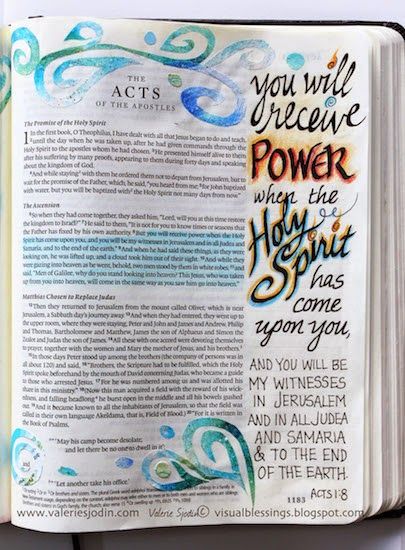 THE
ACTS
OF THE APOSTLES
The Promise of the Holy Spirit
1 In the first book, O Theophilus, I have dealt with all that Jesus began to do and teach,
until the day when he was taken up, after he had given commands through the
Holy Spirit to the apostles whom he had chosen. He presented himself alive to them
after his suffering by many proofs, appearing to them during forty days and speaking
about the kingdom of God.
And while staying with them he ordered them not to depart from Jerusalem, but to
wait for the promise of the Father, which, he said, "you heard from me; for John baptized
with water, but you will be baptized with the Holy Spirit not many days from now."
The Ascension
So when they had come together, they asked him, "Lord, will you at this time restore
the kingdom to Israel?" He said to them, "It is not for you to know times or seasons that
the Father has fixed by his own authority. But you will receive power when the Holy
Spirit has come upon you, and you will be my witnesses in Jerusalem and in all Judea and
Samaria, and to the end of the earth." And when he had said these things, as they were
looking on, he was lifted up, and a cloud took him out of their sight. And while they
were gazing into heaven as he went, behold, two men stood by them in white robes, and
said, "Men of Galilee, why do you stand looking into heaven? This Jesus, who was taken
up from you into heaven, will come in the same way as you saw him go into heaven."
Matthias Chosen to Replace Judas
Then they returned to Jerusalem from the mount called Olivet, which is near
Jerusalem, a Sabbath day's journey away. And when they had entered, they went up to
the upper room, where they were staying, Peter and John and James and Andrew, Philip
and Thomas, Bartholomew and Matthew, James the son of Alphaeus and Simon the
Zealot and Judas the son of James. All these with one accord were devoting themselves
to prayer, together with the women and Mary the mother of Jesus, and his brothers.
In those days Peter stood up among the brothers (the company of persons was in
all about 120) and said, "Brothers, the Scripture had to be fulfilled, which the Holy
Spirit spoke beforehand by the mouth of David concerning Judas, who became a guide
to those who arrested Jesus. For he was numbered among us and was allotted his
share in this ministry." (Now this man acquired a field with the reward of his wick-
edness, and falling headlong he burst open in the middle and all his bowels gushed
out. And it became known to all the inhabitants of Jerusalem, so that the field was
called in their own language Akeldama, that is, Field of Blood.) "For it is written in
the Book of Psalms,
"'May his camp become desolate,
and let there be no one to dwell in it';
and
"'Let another take his office.'
you will
receive
POWER
when the
Holy
Spirit
has
come
upon you,
AND YOU WILL BE
MY WITNESSES
IN JERUSALEM
AND IN ALL JUDEA
AND SAMARIA
& TO THE END
OF THE EARTH.
ACTS 1:8
1183
www.valeriesjodin.com Valerie Sjodin © visualblessings.blogspot.com